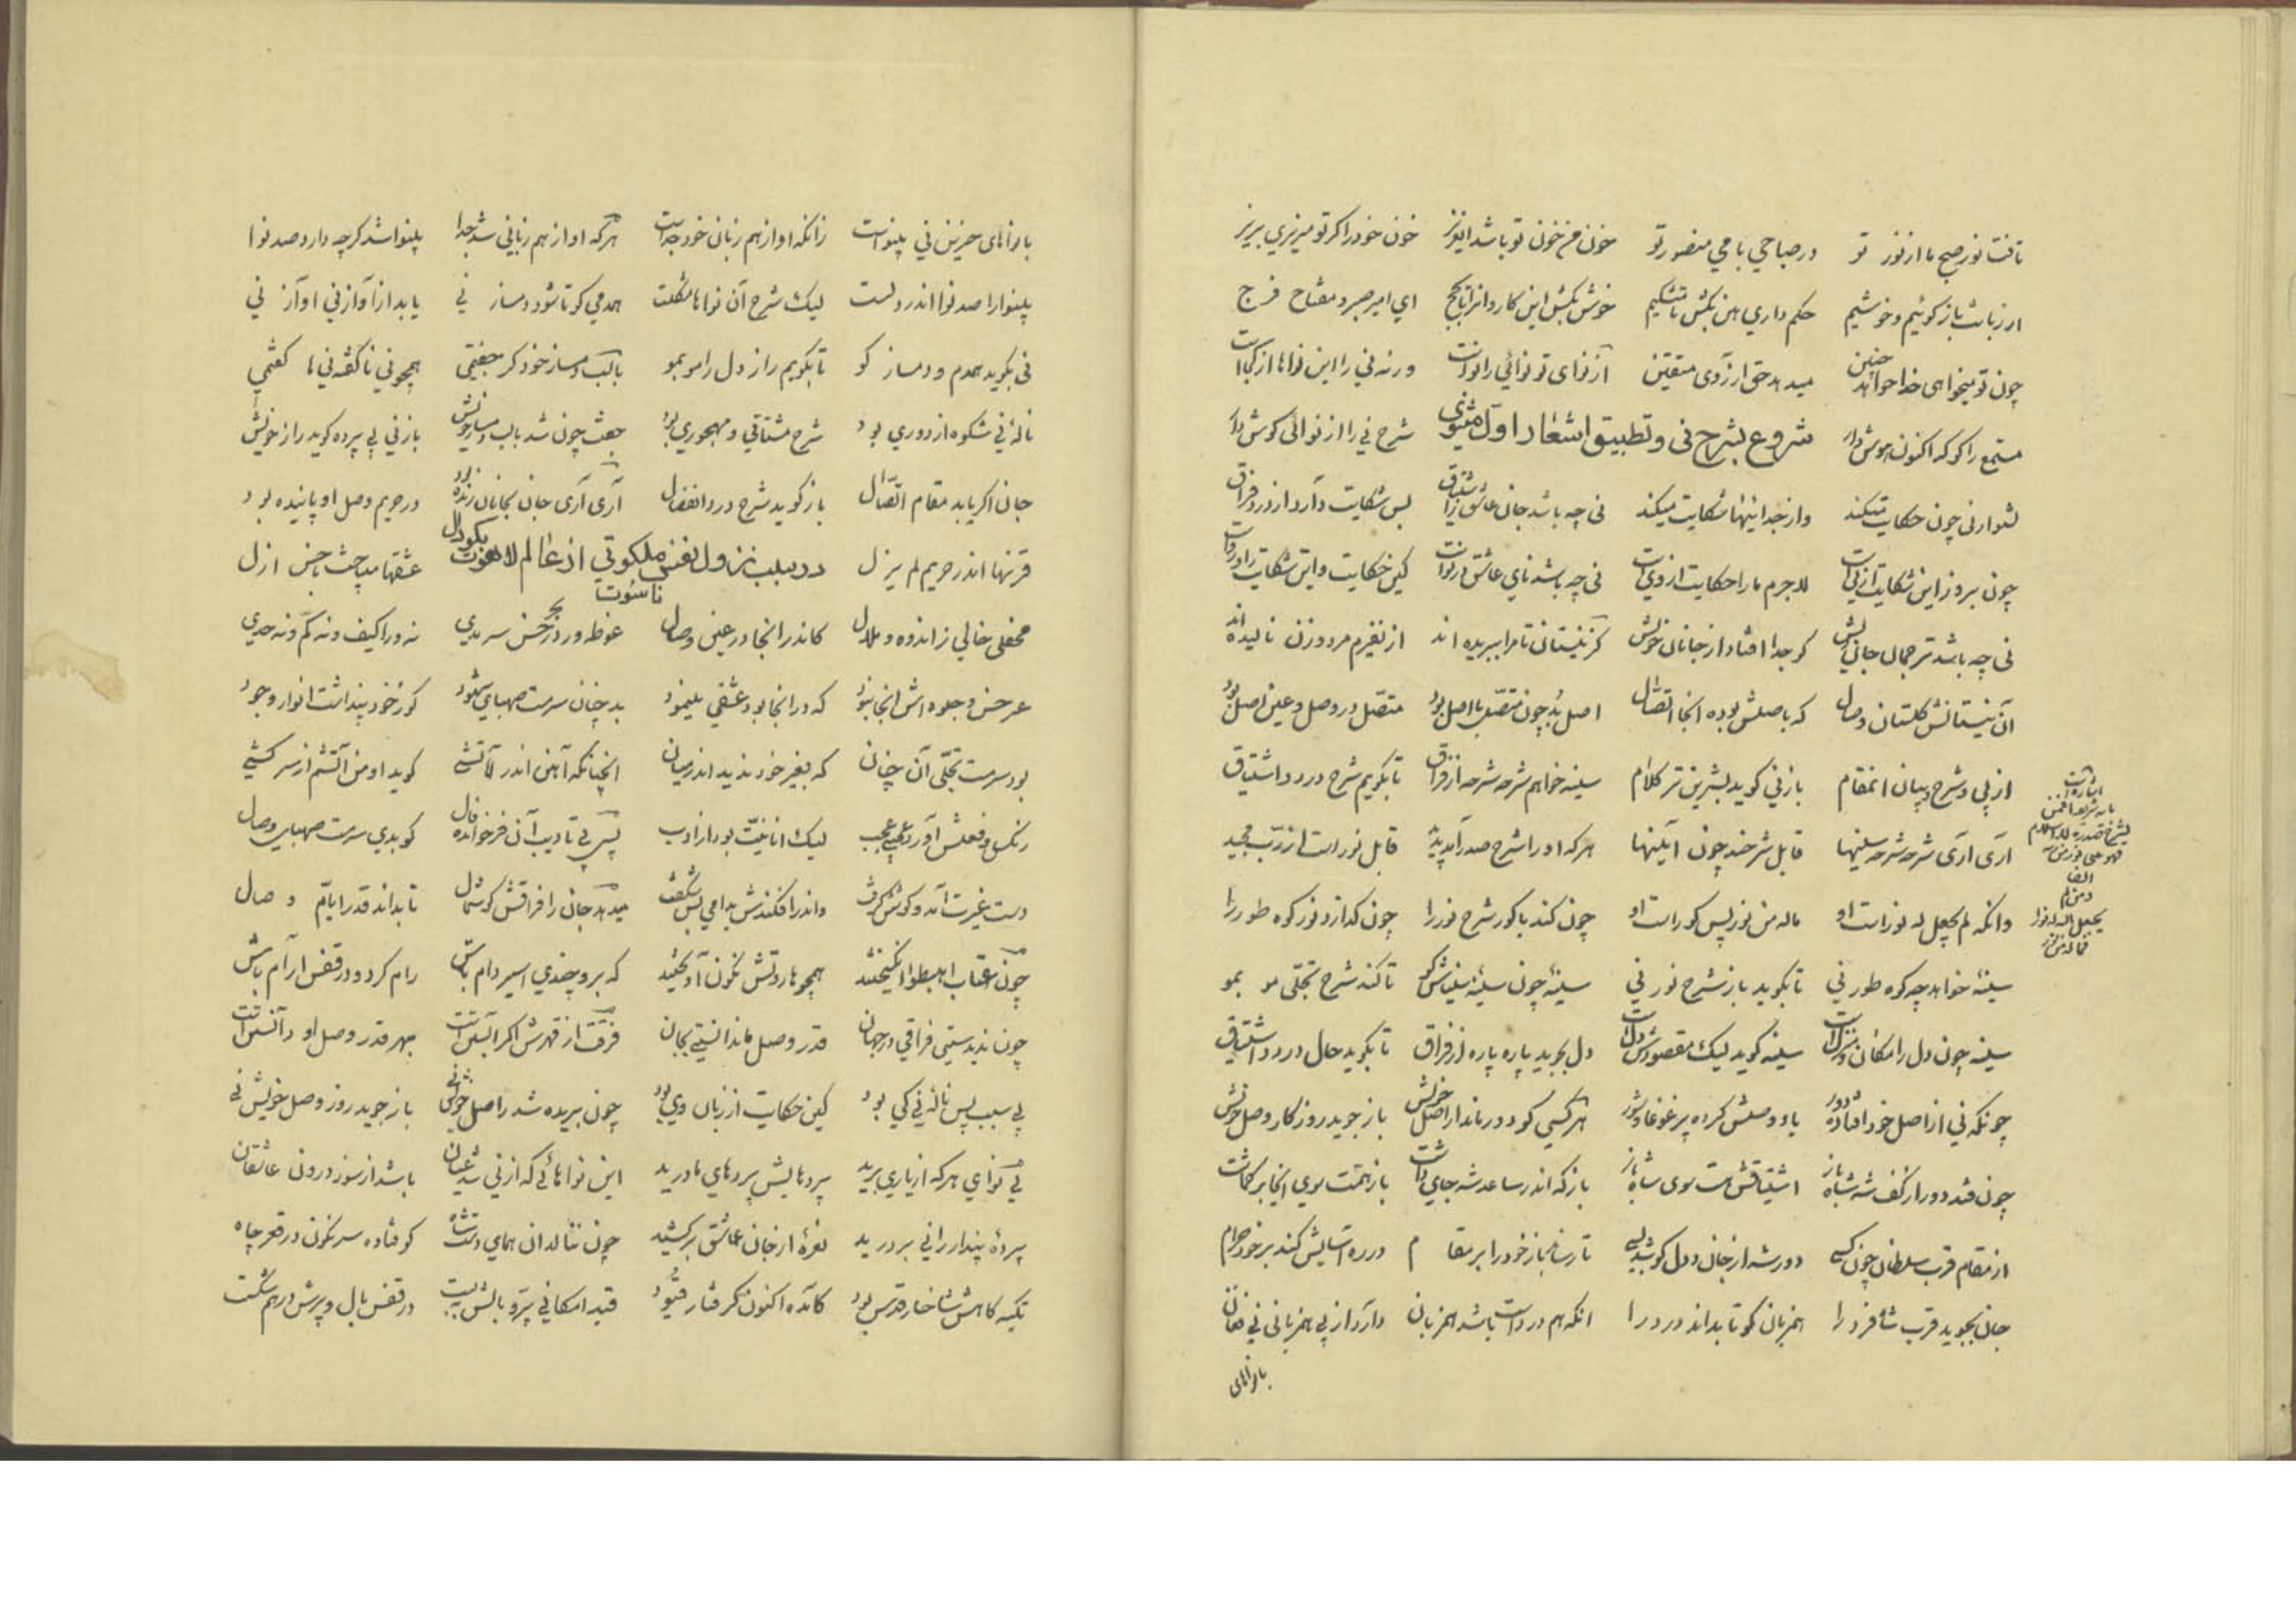 تافت نور صبح ما از نور تو در صباحی با می منصور تو خون من خون تو باشد ای عزیز خون خود را گر تو میریزی بریز
از زبانت باز گوئیم و خوشیم حکم داری هین بکش تا میکشیم خوش بکش این کاروانرا تا بحج ای امیر صبر و مفتاح فرج
چون تو میخواهی خدا خواهد چنین میدهد حق آرزوی متقین از نوای تو نوائی را نواست ورنه نی را این نواها از کجاست
مستمع را کو که اکنون هوش دار شروع بشرح نی و تطبیق اشعار اول مثنوی شرح نی را از نوائی گوش دار
بشنو از نی چون حکایت میکند وز جدائیها شکایت میکند نی چه باشد جان عاشق پس شکایت دارد از درد فراق
چون بروز این شکایت از نی است لاجرم ما را حکایت از وی است نی چه باشد نای عاشق در نواست کین حکایت و این شکایت
نی چه باشد ترجمان جان خویش کو جدا افتاد از جانان خویش کز نیستان تا مرا ببریده اند از نفیرم مرد و زن نالیده اند
آن نیستانش گلستان وصال که باصلش بوده آنجا اتصال اصل بد چون متصل با اصل بود متصل در وصل و عین اصل بود
از پی شرح و بیان انمقام باز نی گوید بشیرین تر کلام سینه خواهم شرحه شرحه از فراق تا بگویم شرح درد اشتیاق
آری آری شرحه شرحه سینها قابل شرحند چون آئینها هر که او را شرح صدر آمد پدید قابل نور است از رب مجید
وانکه لم یجعل له نور است او ماله من نور پس کور است او چون کند با کور شرح نور را چون گدازد نور کوه طور را
سینه خواهد چه کوه طور نی تا بگوید باز شرح نور نی سینهٔ چون سینهٔ سیناش کو تا کند شرح تجلی مو بمو
سینه چون دل را مکان و منزل است سینه گوید لیک مقصودش دل است دل بجوید پاره پاره از فراق تا بگوید حال درد اشتیاق
چونکه نی از اصل خود افتاده دور یاد وصلش کرده پر غوغا و شور هر کسی کو دور ماند از اصل خویش باز جوید روزگار وصل خویش
چون فتد دور از کف شه شاه باز اشتیاقش هست سوی شاه باز باز که اندر ساعد شه جای داشت باز همت سوی آنجا بر گماشت
از مقام قرب سلطان چون کسی دور شد از جان و دل کوشد بسی تا رساند باز خود را بر مقام در ره آسایش کند بر خود حرام
جان بجوید قرب شاه فرد را همزبان کو تا بداند درد را انکه هم درد است باشد همزبان دارد از بی همزبانی نی فغان
بانواهای
اشارت
بایه شریفه افمن
شرح الله صدره للاسلام
فهو علی نور من ربه
ومن لم
یجعل الله له نورا
فماله من نور
بانواهای حزین نی بینواست زانکه او از هم زبان خود جداست هر که او از هم زبانی شد جدا بینوا شد گرچه دارد صد نوا
بینوا را صد نوا اندر دلست لیک شرح آن نواها مشکلست همدمی کو تا شود دمساز نی یابد از آواز نی آواز نی
نی بگوید همدم و دمساز کو تا بگویم راز دل را مو بمو با لب دمساز خود گر جفتمی همچو نی ناگفتنیها گفتمی
نالهٔ نی شکوه از دوری بود شرح مشتاقی و مهجوری بود جفت چون شد با لب دمساز خویش باز نی بی پرده گوید راز خویش
جان اگر یابد مقام اتصال باز گوید شرح درد انفصال آری آری جان بجانان زنده بود در حریم وصل او پاینده بود
قرنها اندر حریم لم یزل در سبب نزول نفس ملکوتی از عالم لاهوت بگودال ناسوت عشقها میباخت با حسن ازل
محفلی خالی ز اندوه و ملال کاندر انجا در عین وصال غوطه ور در بحر حسن سرمدی نه ورا کیف و نه کم و نه حدی
غیر حسن و جلوه اش انجا نبود که در انجا بود عشقی مینمود بد چنان سرمست صهبای شهود کو ز خود پنداشت انوار وجود
بود سرمست تجلی آن چنان که بغیر خود ندید اندر میان انچنانکه آهن اندر آتشی گوید او من آتشم از سر کشی
رنگ و فعلش آورد عجب لیک انانیت بود از ادب پس پی تادیب آن فرخنده فال کو بدی سرمست صهبای وصال
دست غیرت آمد و گوشش گرفت واندر افکندش بدامی بس شگفت میدهد جان را فراقش گوشمال تا بداند قدر ایام وصال
چون عقاب اهبطوا انگیختند همچو هاروتش نگون آویختند که برو چندی اسیر دام باش رام گرد و در قفس آرام باش
چون ندیدستی فراقی در جهان قدر وصل ما ندانستی بجان فرقت از قهرش اگر آبستن است بهر قدر وصل او دانستن است
بی سبب پس نالهٔ نی کی بود کین حکایت از زبان وی بود چون بریده شد ز اصل خویش نی باز جوید روز وصل خویش نی
بی نوای هر که از یاری برید پردهایش پردهای ما درید این نواهائی که از نی شد عیان باشد از سوز درون عاشقان
پردهٔ پندار را نی بر درید نعرهٔ از جان عاشق بر کشید چون ننالد ان همای دستشاه کو فتاده سرنگون در قعر چاه
تکیه گاهش شاخسار قدس بود کامده اکنون گرفتار قیود قید امکانی پر و بالش ببست در قفس بال و پرش درهم شکست